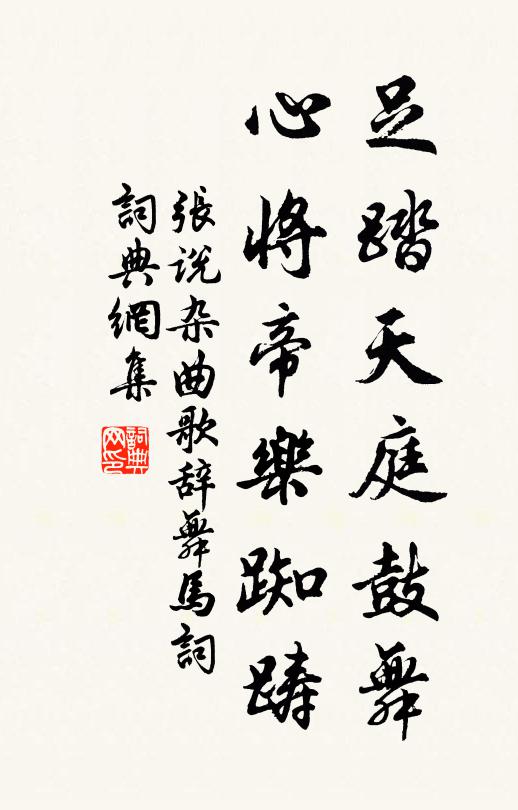 足踏天庭鼓舞
心將帝樂踟躊
張说杂曲歌辞舞馬詞
詞典網集
詞典网印